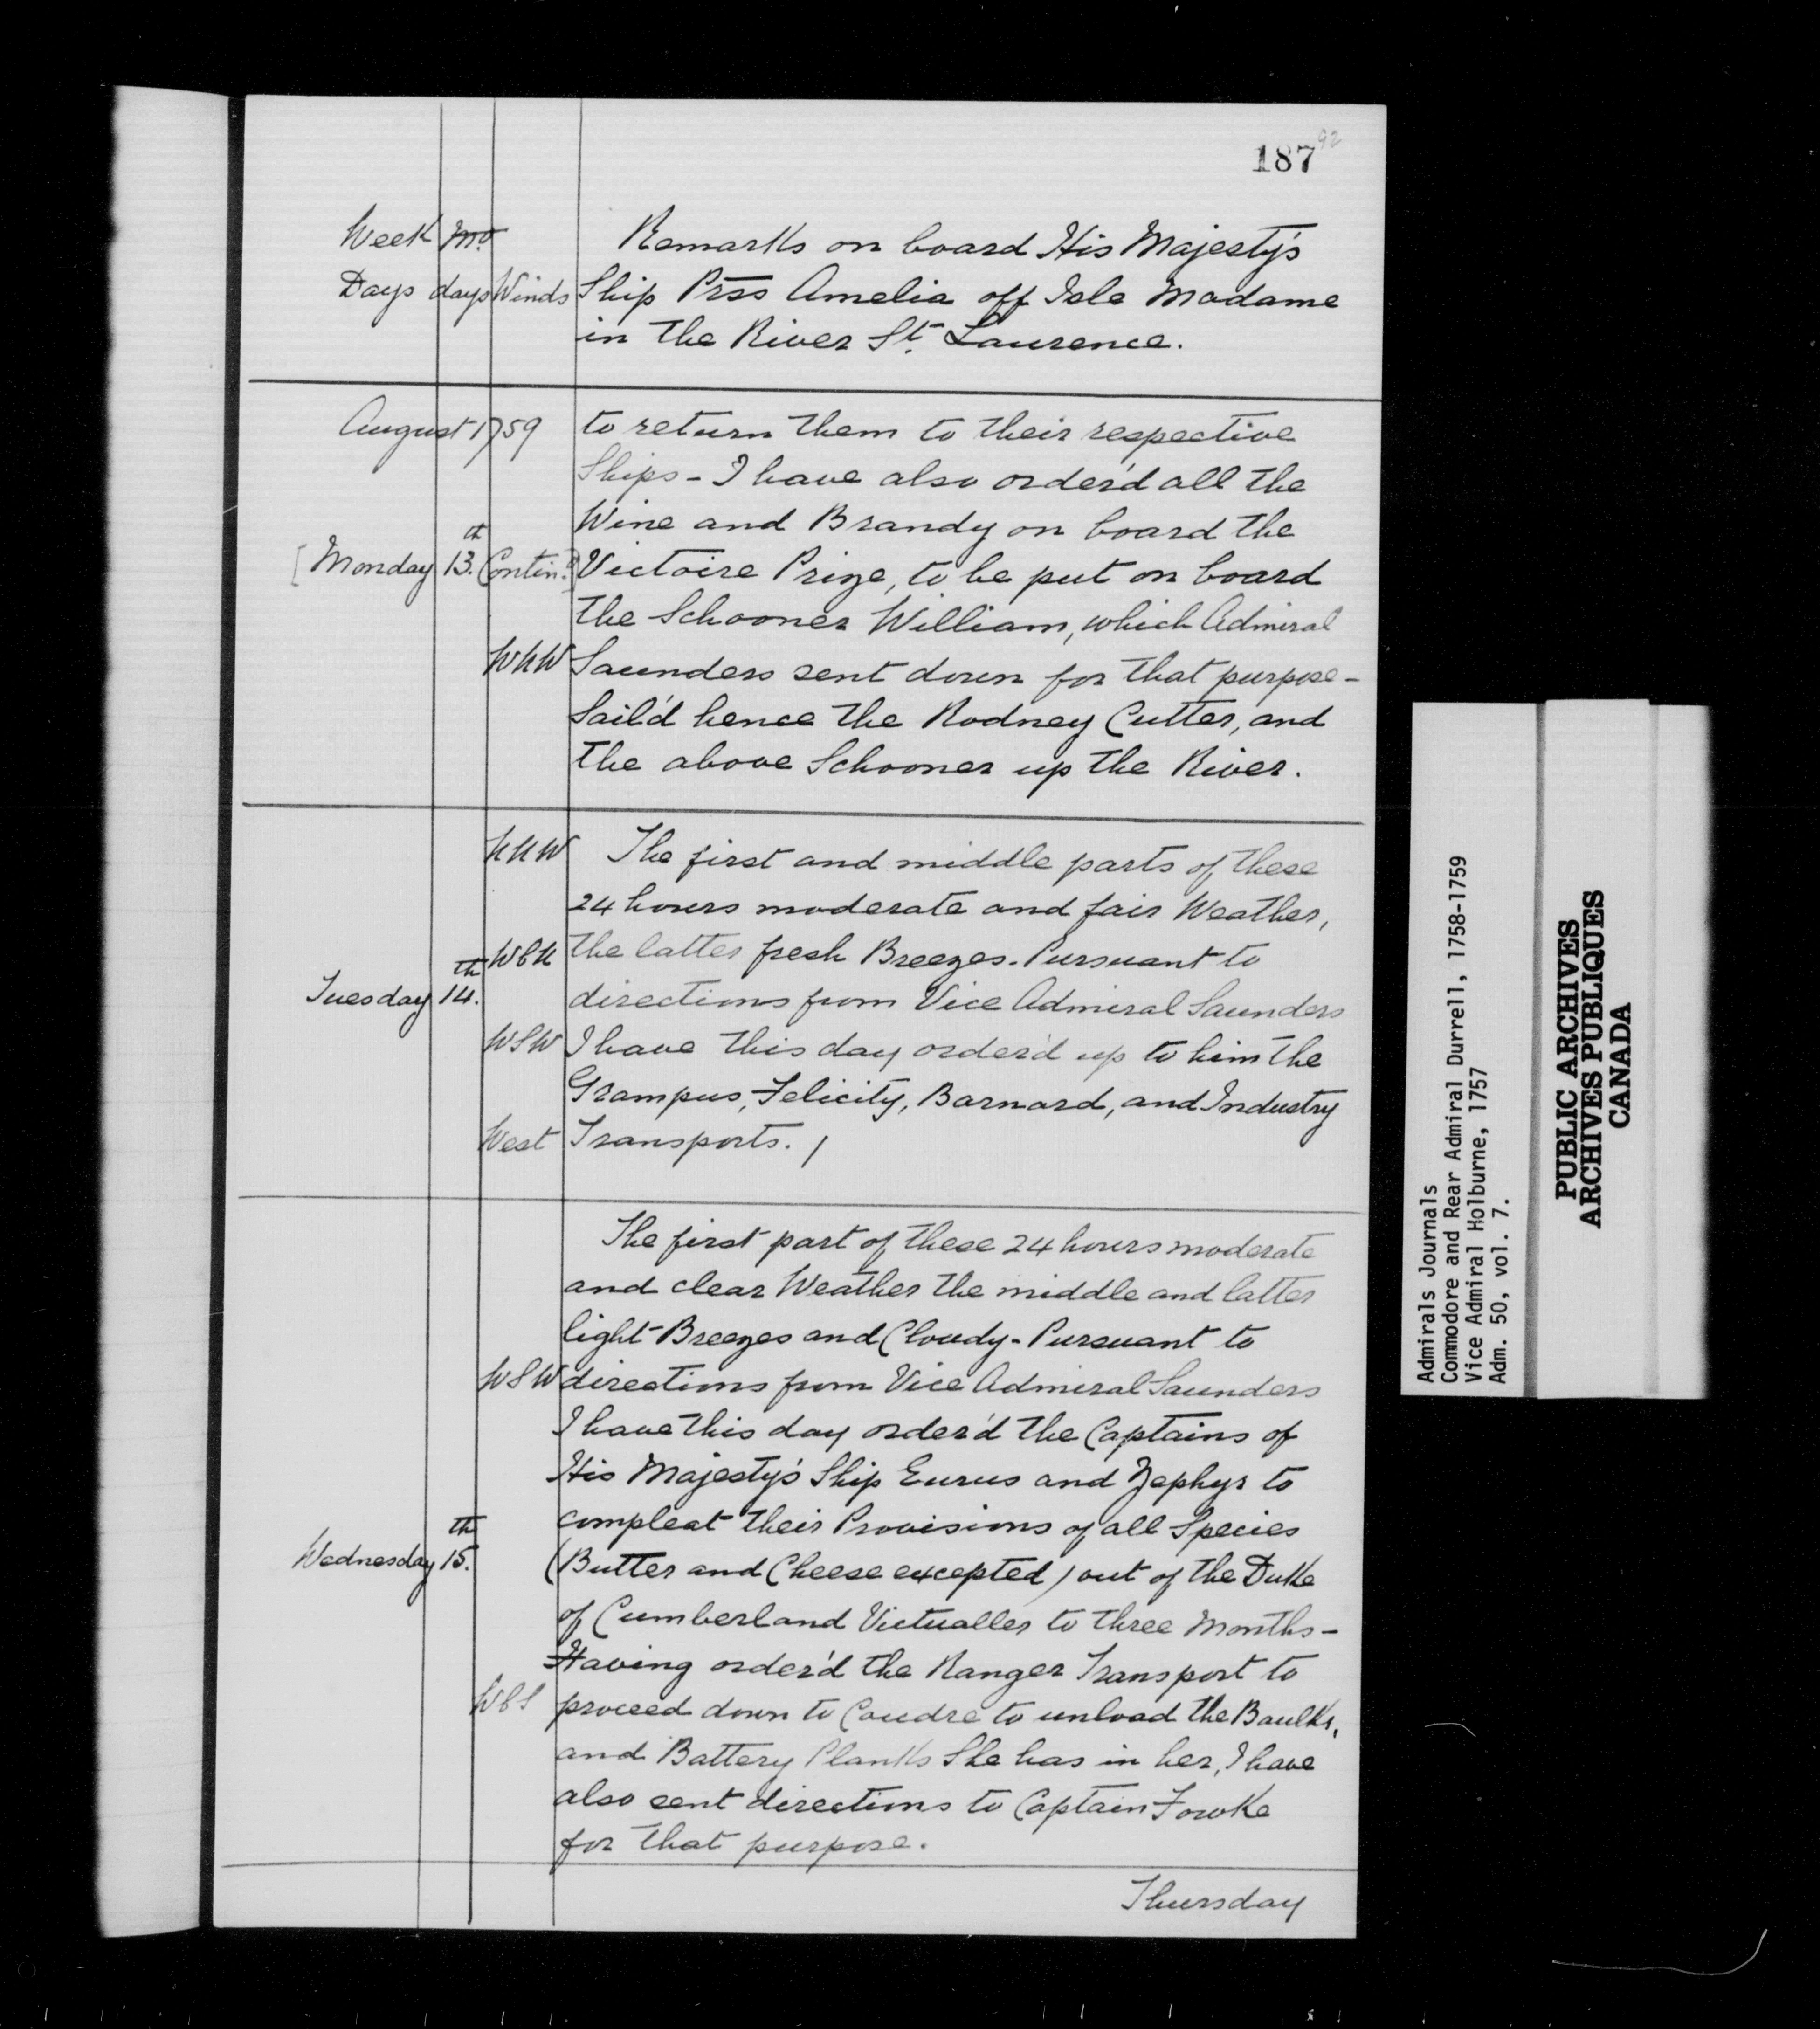 187 92
Week Mo. Remarks on board His Majesty's
Days days Winds Ship Prss Amelia off Isle Madame
in the River St. Laurence.
August 1759 to return them to their respective
Ships - I have also order'd all the
Wine and Brandy on board the
[Monday 13.th Contin.d] Victoire Prize, to be put on board
the Schooner William, which Admiral
WNW Saunders sent down for that purpose -
Sail'd hence the Rodney Cutter, and
the above Schooner up the River.
NNW The first and middle parts of these
24 hours moderate and fair Weather,
WbN the latter fresh Breezes. Pursuant to
Tuesday 14.th directions from Vice Admiral Saunders
WSW I have this day order'd up to him the
Grampus, Felicity, Barnard, and Industry
West Transports. /
The first part of these 24 hours moderate
and clear Weather the middle and latter
light Breezes and Cloudy - Pursuant to
WSW directions from Vice Admiral Saunders
I have this day order'd the Captains of
His Majesty's Ship Eurus and Zephyr to
compleat their Provisions of all Species
Wednesday 15.th (Butter and Cheese excepted) out of the Duke
of Cumberland Victualler to three Months -
Having order'd the Ranger Transport to
WbS proceed down to Coudre to unload the Baulks,
and Battery Planks She has in her, I have
also sent directions to Captain Fowke
for that purpose.
Thursday
Admirals Journals
Commodore and Rear Admiral Durrell, 1758-1759
Vice Admiral Holburne, 1757
Adm. 50, vol. 7.
PUBLIC ARCHIVES
ARCHIVES PUBLIQUES
CANADA